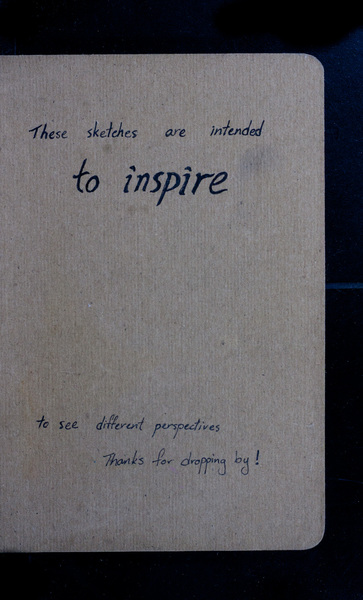 These sketches are intended
to inspire
to see different perspectives
Thanks for dropping by!